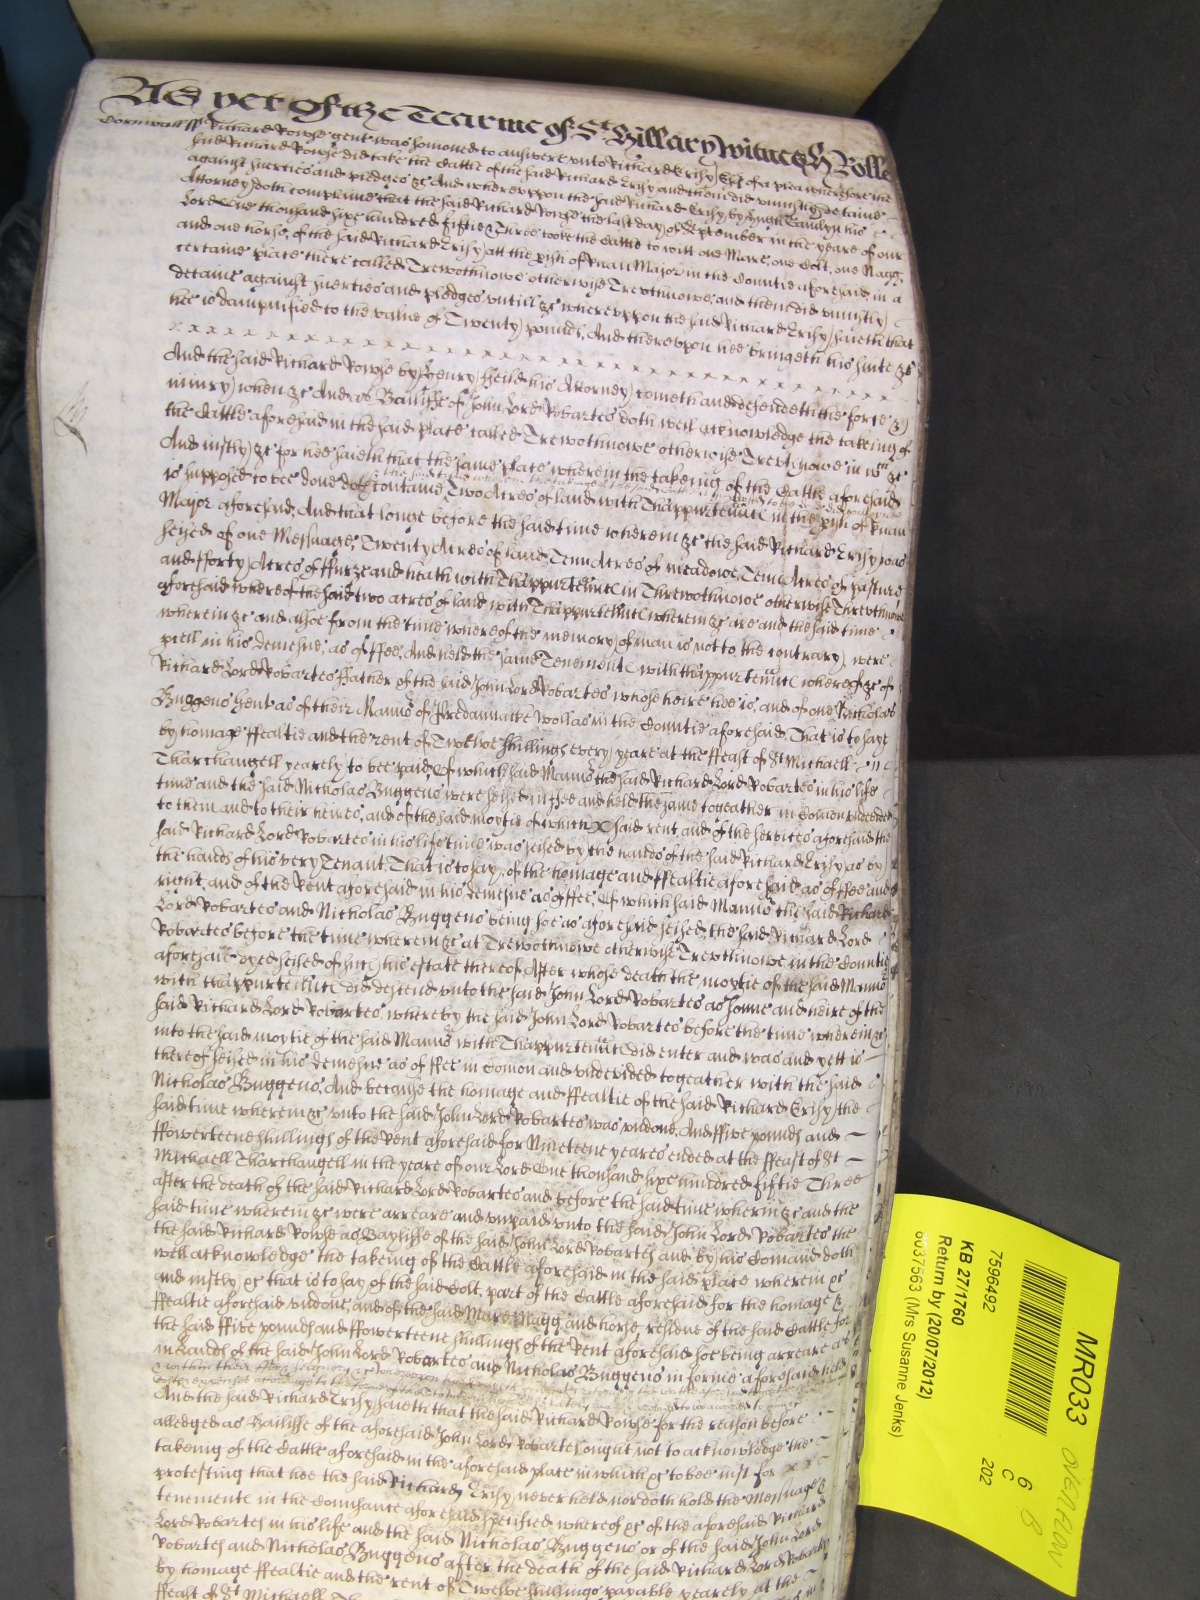 As yet of the Tearme of St Hillary witnes H Rolle
Cornwall ss Richard Rowse gent was somoned to answere unto Richard Erisy Esqr of a plea wherefore the
said Richard Rowse did take the Cattle of the said Richard Erisy and them did uniustly detaine
against suerties and pledges &c And whereuppon the said Richard Erisy by Hugh his
Attorney doth complaine that the said Richard Rowse the last day of September in the yeare of our
Lord One thousand sixe hundred fiftie Three tooke the Cattle to witt one Mare, one Colt, one Nagg,
and one horse, of the said Richard Erisy att the pish of Ruan Major in the Countie aforesaid in a
certaine place there called Trewothnowe otherwise Trevthnowe, and them did uniustly
detaine against suerties and pledges untill &c whereuppon the said Richard Erisy saieth that
hee is dampnified to the value of Twenty pounds, And thereupon hee bringeth his suite &c
And the said Richard Rowse by Henry his Attorney cometh and defendeth the force &
iniury when &c And as Bailiffe of John Lord Robartes doth well acknowledge the takeing of
the Cattle aforesaid in the said place called Trewothnowe otherwise Trevthnowe in wch &c
And iustly &c for hee saieth that the same place wherein the takeing of the Cattle aforesaid
is supposed to bee done doth containe Two Acres of land with Thappurtennc in the pish of Ruan
Major aforesaid, And that longe before the said time wherein &c the said Richard Erisy was
seised of one Messuage, Twenty Acres of land, Tenn Acres of meadowe, Tenn Acres of pasture
and fforty Acres of ffurze and heath with Thappurtennc in Threwothnowe otherwise Threvthnowe
aforesaid whereof the said two acres of land with Thappurtennc wherein &c are and the said time
wherein &c and alsoe from the time whereof the memory of man is not to the contrary were
pcell in his demesne, as of ffee, And held the same Tenement with thappurtennc whereof &c of
Richard Lord Robartes ffather of the said John Lord Robartes whose heire hee is, and of one Nicholas
Buggens gent as of their Mannor of Predannacke Wollas in the Countie aforesaid, That is to saye
by homage ffealtie and the rent of Twelve Shillings every yeare at the ffeast of St Michaell
Tharchangell yearely to bee paid, Of which said Mannor the said Richard Lord Robartes in his life
time and the said Nicholas Buggens were seised in ffee and held the same togeather in Comon undevided
to them and to their heires, and of the said moytie of which said rent, and of the services aforesaid the
said Richard Lord Robartes in his life time was seised by the hands of the said Richard Erisy as by
the hands of his very Tenant, That is to say, of the homage and ffealtie aforesaid as of ffee and
right, and of the Rent aforesaid in his demesne as of ffee, Of which said Mannor the said Richard
Lord Robartes and Nicholas Buggens being soe as aforesaid seised, the said Richard Lord
Robartes before the time wherein &c at Trewothnowe otherwise Trevthnowe in the Countie
aforesaid dyed seised of such his estate thereof After whose death the moytie of the said Mannor
with thappurtennc did descend unto the said John Lord Robartes as sonne and heire of the
said Richard Lord Robartes whereby the said John Lord Robartes before the time wherein &c
into the said moytie of the said Mannor with Thappurtennc did enter and was and yett is
thereof seised in his demesne as of ffee in Comon and undevided togeather with the said
Nicholas Buggens, And because the homage and ffealtie of the said Richard Erisy the
said time wherein &c unto the said John Lord Robartes was undone, And ffive pounds and
ffowerteene shillings of the Rent aforesaid for Nineteene yeares ended at the ffeast of St
Michaell Tharchangell in the yeare of our Lord One thousand sixe hundred fiftie Three
after the death of the said Richard Lord Robartes and before the said time wherin &c and the
said time wherein &c were arreare and unpaid unto the said John Lord Robartes the
the said Richard Rowse as Bayliffe of the said John Lord Robartes and by his Comand doth
well acknowledge the takeing of the Cattle aforesaid in the said place wherein &c
and iustly &c that is to say of the said Colt, part of the Cattle aforesaid for the homage &
ffealtie aforesaid undone, and of the said Mare Nagg and horse residue of the said Cattle for
the said ffive pounds and ffowerteene shillings of the Rent aforesaid soe being arreare as
in Lands of the said John Lord Robartes and Nicholas Buggens in forme aforesaid held
And the said Richard Erisy saieth that the said Richard Rowse for the reason before
alledged as Bailiffe of the aforesaid John Lord Robartes ought not to acknowledge the
takeing of the Cattle aforesaid in the aforesaid place in which &c to bee iust for
protesting that hee the said Richard Erisy never held nor doth hold the Messuage &
tenement in the Conuzance aforesaid specified whereof &c of the aforesaid Richard
Lord Robartes in his life and the said Nicholas Buggens or of the said John Lord
Robartes and Nicholas Buggens after the death of the said Richard Lord Robartes
by homage ffealtie and the rent of Twelve shillings payable yearely at the
ffeast of St Michaell
MR033
6
C
202
7596492
KB 27/1760
Return by (20/07/2012)
8037563 (Mrs Susanne Jenks)